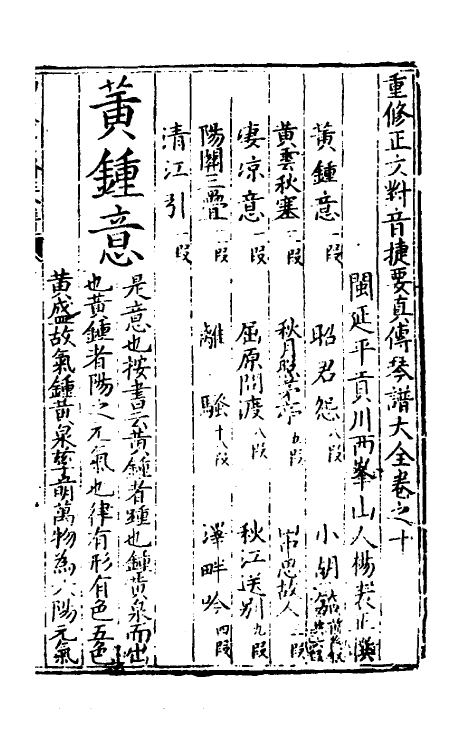 重修正文對音捷要真傳琴譜大全卷之十
閩延平貢川西峯山人楊表正撰
黃鍾意一段 昭君怨八段 小胡笳
黃雲秋塞 秋月照茅亭五段 思故人
淒涼意一段 屈原問渡八段 秋江送別九段
陽關三疊 離騷十八段 澤畔吟四段
清江引一段
黃鍾意
是意也按書云黃鍾者踵也鍾黃泉而出
也黃鍾者陽之元氣也律有形有色五色
黃盛故氣鍾黃泉孳萌萬物為六陽元氣